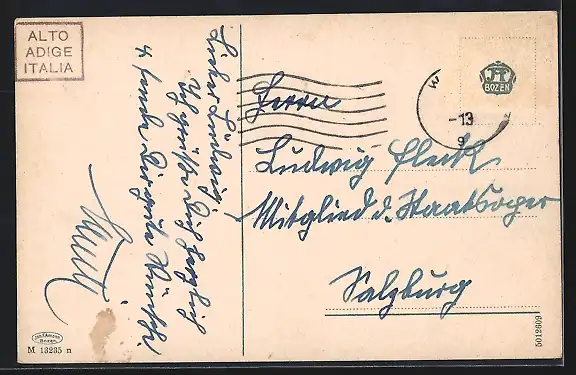 ALTO
ADIGE
ITALIA
Lieber Ludwig!
Ich grüße Dich herzlich
u. sende Dir gute Wünsche!
Herrn
Ludwig Fleck
Mitglied d. Staatsoper
Salzburg
JT
BOZEN
W
-13
9
Bozen
M 13235 n
5012609